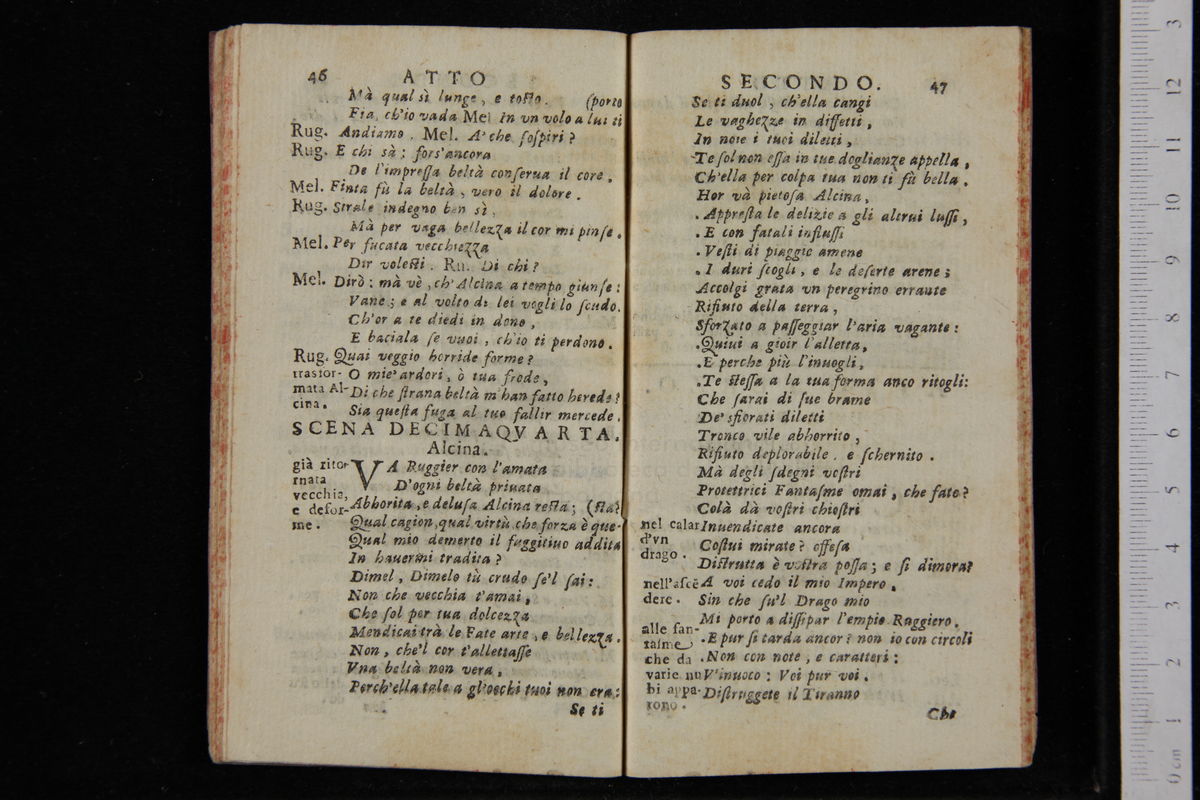 46 ATTO
Mà qual sì lunge, e tosto. (porto
Fia, ch'io vada Mel In vn volo a lui ti
Rug. Andiamo. Mel. A' che sospiri?
Rug. E chi sà; fors'ancora
De l'impressa beltà conserua il core.
Mel. Finta fù la beltà, vero il dolore.
Rug. Strale indegno ben sì,
Mà per vaga bellezza il cor mi pinse.
Mel. Per fucata vecchiezza
Dir volesti. Ru. Di chi?
Mel. Dirò: mà vè, ch'Alcina a tempo giunse:
Vane; e al volto di lei vogli lo scudo.
Ch'or a te diedi in dono,
E baciala se vuoi, ch'io ti perdono.
Rug. Quai veggio horride forme?
trasfor- O mie' ardori, ò tua frode,
mata Al- Di che strana beltà m'han fatto herede?
cina. Sia questa fuga al tuo fallir mercede.
SCENA DECIMAQVARTA.
Alcina.
già ritor- VA Ruggier con l'amata
rnata D'ogni beltà priuata
vecchia, Abhorita, e delusa Alcina resta; (sta?
e defor- Qual cagion, qual virtù, che forza è que-
me. Qual mio demerto il fuggitiuo addita
In hauermi tradita?
Dimel, Dimelo tù crudo se'l sai:
Non che vecchia t'amai,
Che sol per tua dolcezza
Mendicai trà le Fate arte, e bellezza.
Non, che'l cor t'allettasse
Vna beltà non vera,
Perch'ella tale a gl'occhi tuoi non era:
Se ti
SECONDO. 47
Se ti duol, ch'ella cangi
Le vaghezze in diffetti,
In noie i tuoi diletti,
Te sol non essa in tue doglianze appella,
Ch'ella per colpa tua non ti fù bella.
Hor và pietosa Alcina,
Appresta le delizie a gli altrui lussi,
E con fatali influssi
Vesti di piaggie amene
I duri scogli, e le deserte arene;
Accolgi grata vn peregrino errante
Rifiuto della terra,
Sforzato a passeggiar l'aria vagante:
Quiui a gioir l'alletta,
E perche più l'inuogli,
Te stessa a la tua forma anco ritogli:
Che sarai di sue brame
De' sfiorati diletti
Tronco vile abhorrito,
Rifiuto deplorabile, e schernito.
Mà degli sdegni vostri
Protettrici Fantasme omai, che fate?
Colà dà vostri chiostri
nel calar Inuendicate ancora
d'vn Costui mirate? offesa
drago. Distrutta è vostra possa; e si dimora?
nell'ascē A voi cedo il mio Impero,
dere. Sin che su'l Drago mio
Mi porto a dissipar l'empio Ruggiero.
alle fan- E pur si tarda ancor? non io con circoli
tasme che da Non con note, e caratteri:
varie nu V'inuoco: Voi pur voi.
bi appa- Distruggete il Tiranno
rono.
Che